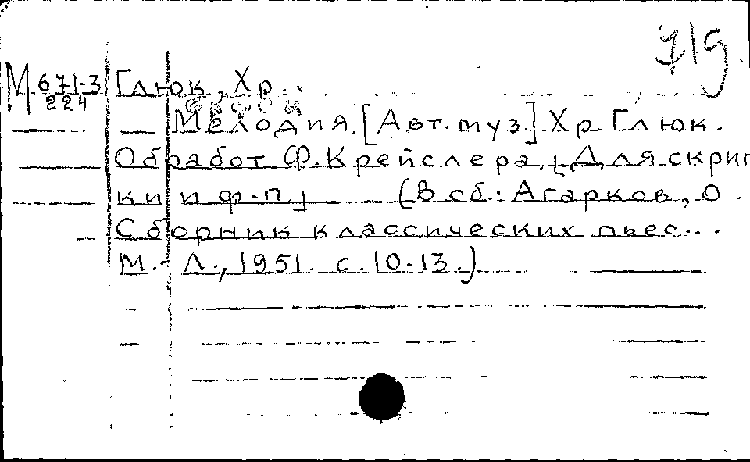 719
М 671-3 Глюк, Хр.
224
— Мелодия. [Авт. муз.] Хр Глюк.
Обработ Ф. Крейслера. [Для скрип
ки и ф.-п.] (В сб: Агарков, О.
Сборник классических пьес...
М.-Л., 1951. с. 10-13.)